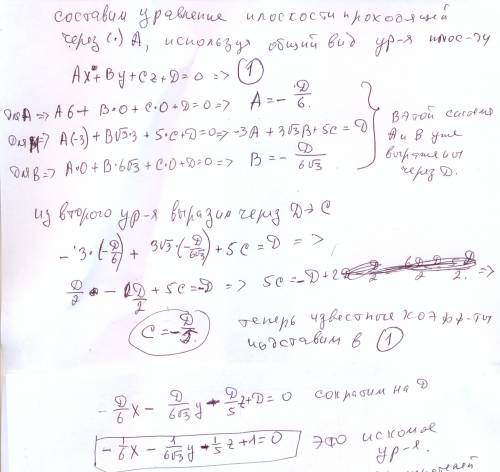 составим уравнение плоскости проходящей
через (·) A, используя общий вид ур-я плос-ти
Ax+By+Cz+D=0 => ①
Для A => A6+B·0+C·0+D=0 => A=-D/6.
Для M => A(-3)+B√3·3+5·C+D=0 => -3A+3√3B+5C=D
Для B => A·0+B·6√3+C·0+D=0 => B=-D/6√3
В этой системе
A и B уже
выражены
через D.
из второго ур-я выразим через D → C
-3·(-D/6)+3√3·(-D/6√3)+5C=D =>
D/2 - D/2+5C=-D => 5C=-D+ =>
C=-D/5.
теперь известные коэфф-ты
подставим в ①
-D/6x-D/6√3y-D/5z+D=0 сократим на D
-1/6x-1/6√3y-1/5z+1=0 это искомое
ур-я.